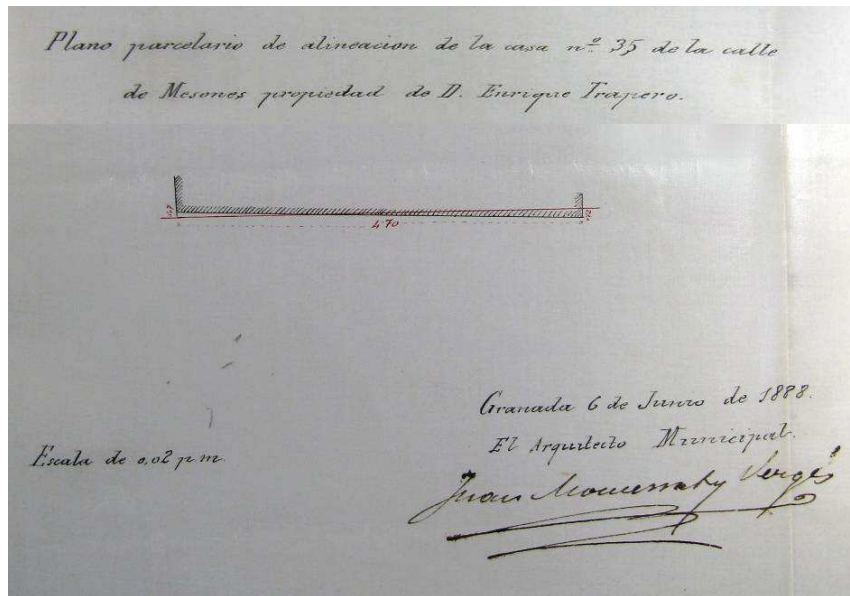 Plano parcelario de alineacion de la casa nº 35 de la calle
de Mesones propiedad de D. Enrique Trapero.
4 70
Granada 6 de Junio de 1888.
El Arquitecto Municipal.
Escala de 0,02 p. m.
Juan Monserrat y Vergés